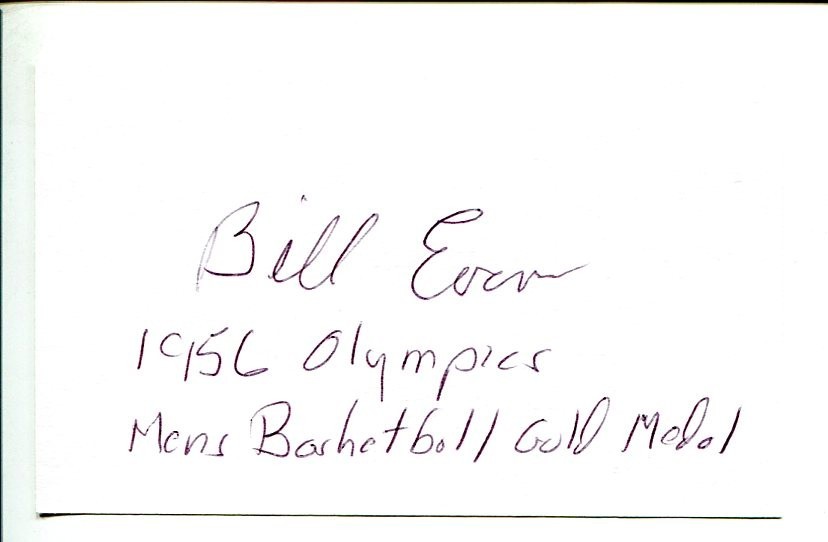 Bill Evans
1956 Olympics
Mens Basketball Gold Medal